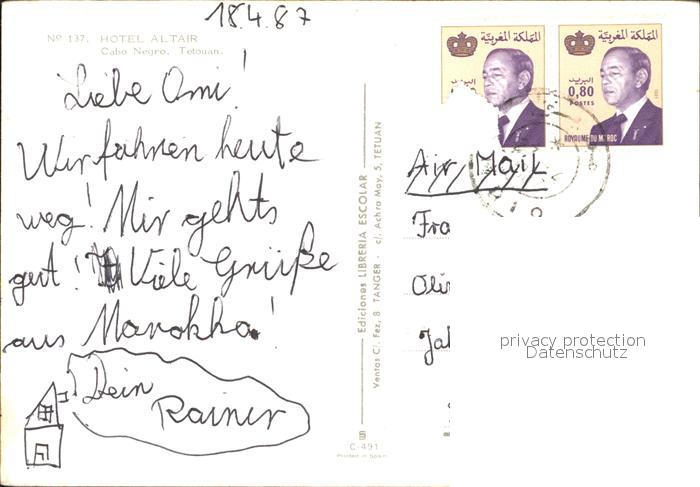 18.4.87
Nº 137. HOTEL ALTAIR
Cabo Negro. Tetouan.
Liebe Omi!
Wir fahren heute
weg! Mir gehts
gut! Viele Grüße
aus Marokko!
Dein
Rainer
Ediciones LIBRERIA ESCOLAR
Ventas C/. Fez, 8 TANGER - c/. Achra May, 5, TETUAN
C-491
Printed in Spain
المملكة المغربية
البريد
المملكة المغربية
البريد
0,80
POSTES
ROYAUME DU MAROC
Air Mail
privacy protection
Datenschutz